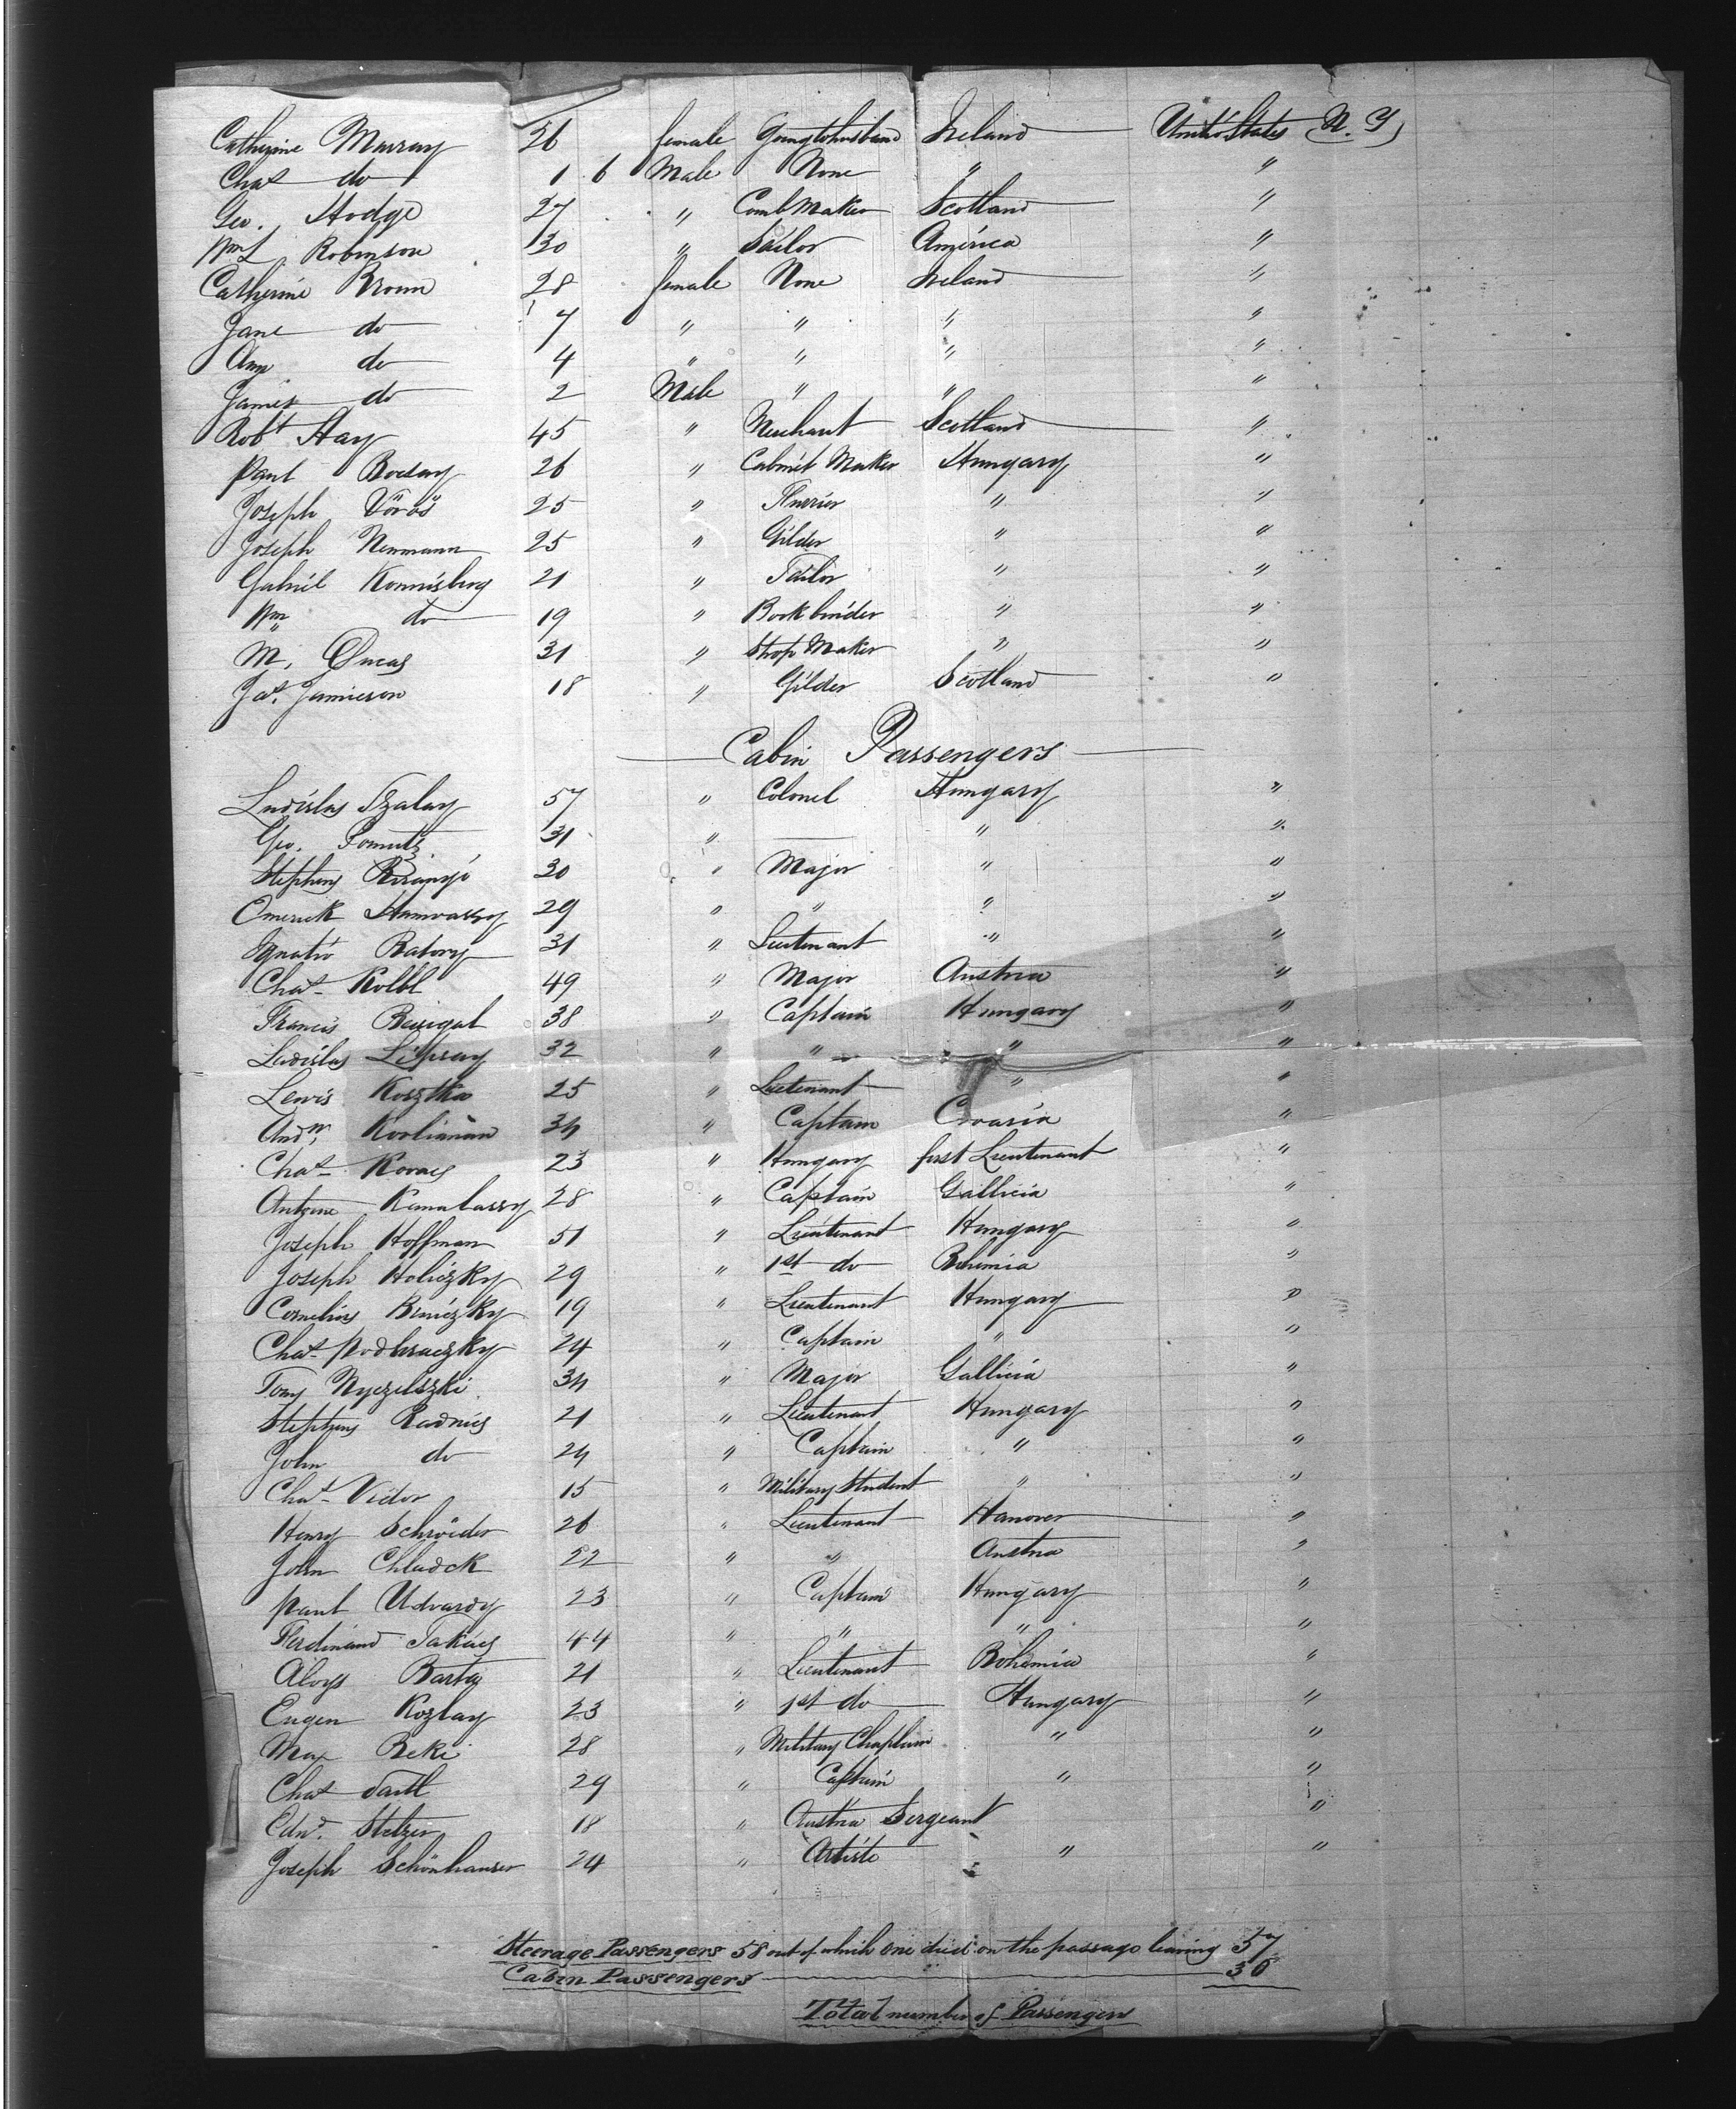 Catherine Murray 26 female Going to husband Ireland United States N. Y
Chas do 1 6 Male None " "
Geo. Hodge 27 " Comb Maker Scotland "
Wm L Robinson 30 " Sailor America "
Catherine Brown 28 female None Ireland "
Jane do 7 " " " "
Ann do 4 " " " "
James do 2 Male " " "
Robt Hay 45 " Merchant Scotland "
Paul Bocsay 26 " Cabinet Maker Hungary "
Joseph Vörös 25 " Furrier " "
Joseph Neumann 25 " Gilder " "
Gabriel 21 " Tailor " "
Wm do 19 " Bookbinder " "
M. 31 " Maker " "
Jas. Jamieson 18 " Gilder Scotland "
Cabin Passengers
Ladislas Szalay 57 " Colonel Hungary "
Geo. Pomutz 31 " — " "
Stephen 30 " Major " "
Omerick Hamvassy 29 " " " "
Ignatio Ratory 31 " Lieutenant " "
Chas Kolbl 49 " Major Austria "
Francis 38 " Captain Hungary "
Ladislas Lipsay 32 " " " "
Lewis Kosztka 25 " Luetenant " "
Andw. 34 " Captain Croasia "
Chas Kovacs 23 " Hungary first Lieutenant "
Antoine 28 " Captain Gallicia "
Joseph Hoffman 51 " Lieutenant Hungary "
Joseph Holiczky 29 " 1st do Bohemia "
Cornelius Beniczky 19 " Lieutenant Hungary "
Chas Podhraczky 24 " Captain " "
Tony 34 " Major Gallicia "
Stephen Radnics 21 " Lieutenant Hungary "
John do 24 " Captain " "
Chas Vidor 15 " Military Student " "
Henry Schröider 26 " Lieutenant Hanover "
John Chladek 22 " " Austria "
Paul Udvardy 23 " Captain Hungary "
Ferdinand Takacs 44 " " " "
Aloys Barta 21 " Lieutenant Bohemia "
Eugen Kozlay 23 " 1st do Hungary "
Max Reki 28 " Military Chaplain " "
Chas 29 " Captain " "
Edwd. Stelzer 18 " Austria Sergeant "
Joseph Schönhauser 24 " Artiste " "
Steerage Passengers 58 out of which one died on the passage leaving 57
Cabin Passengers — 30
Total number of Passengers